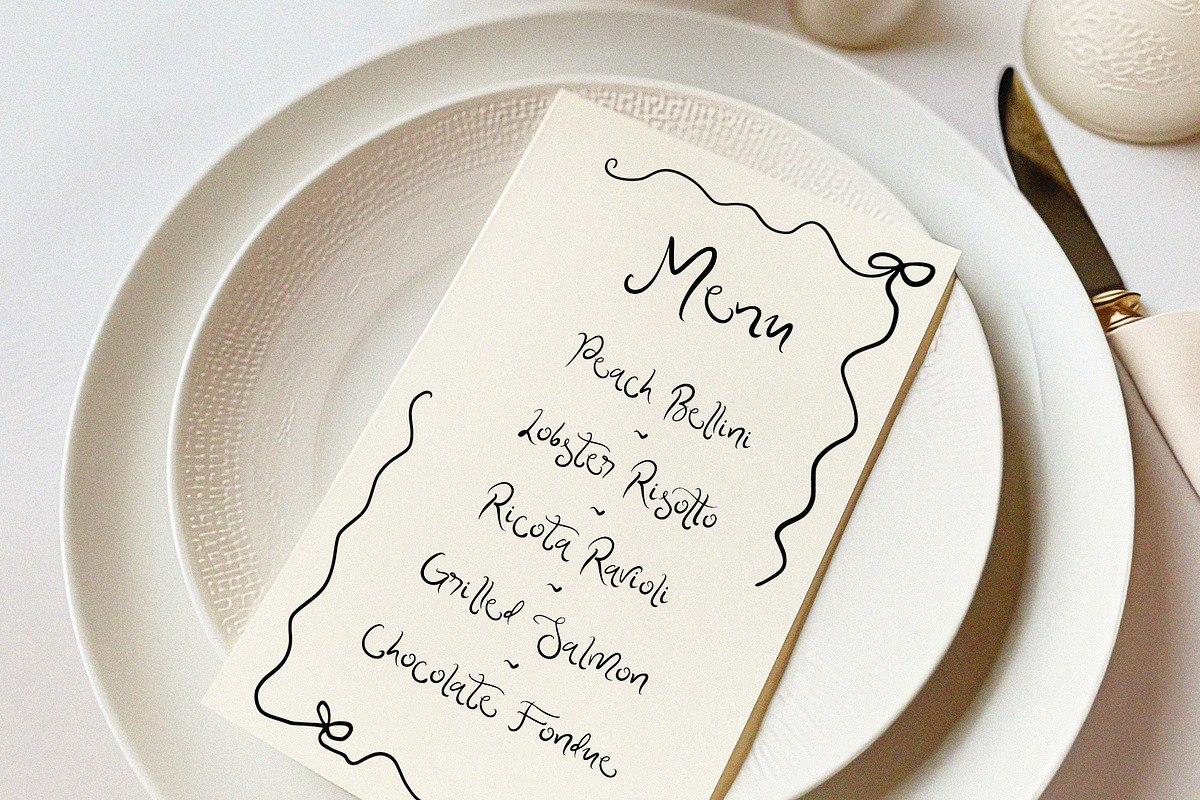 Menu
Peach Bellini
~
Lobster Risotto
~
Ricota Ravioli
~
Grilled Salmon
~
Chocolate Fondue